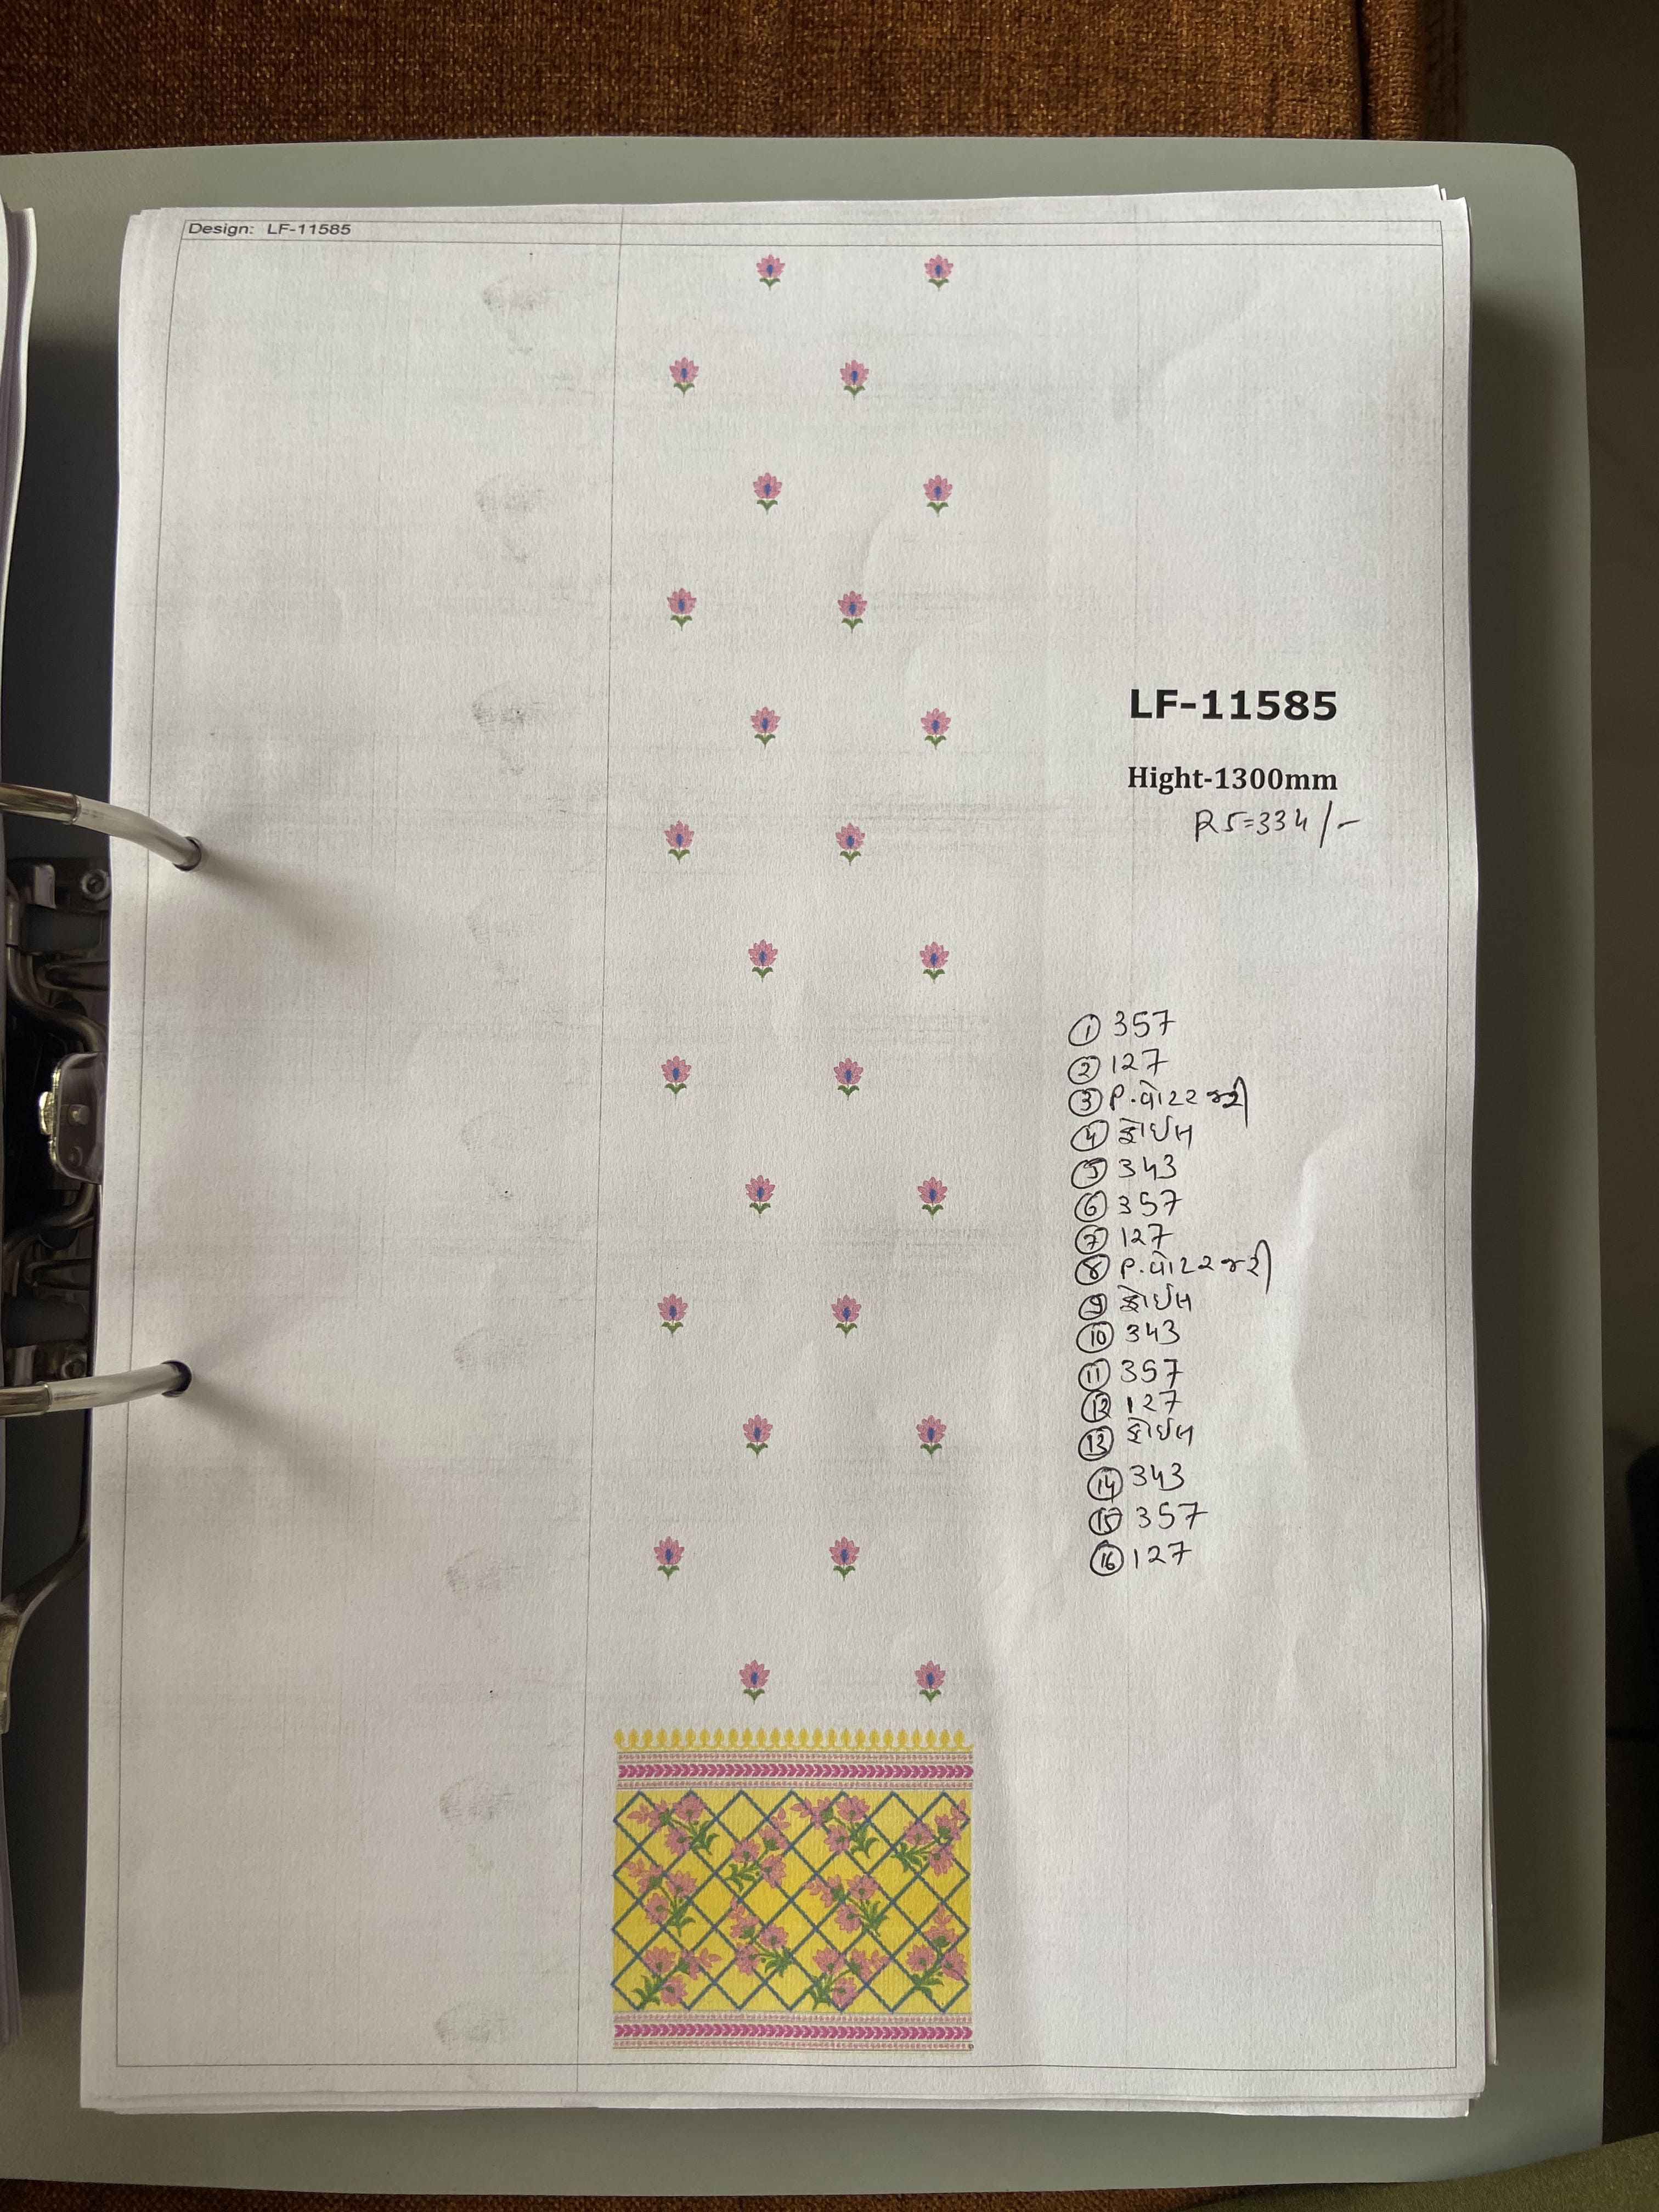 Design: LF-11585
LF-11585
Hight-1300mm
RS=334/-
① 357
② 127
③ P.વોટર જરી
④ ફોઈલ
⑤ 343
⑥ 357
⑦ 127
⑧ P.વોટર જરી
⑨ ફોઈલ
⑩ 343
⑪ 357
⑫ 127
⑬ ફોઈલ
⑭ 343
⑮ 357
⑯ 127